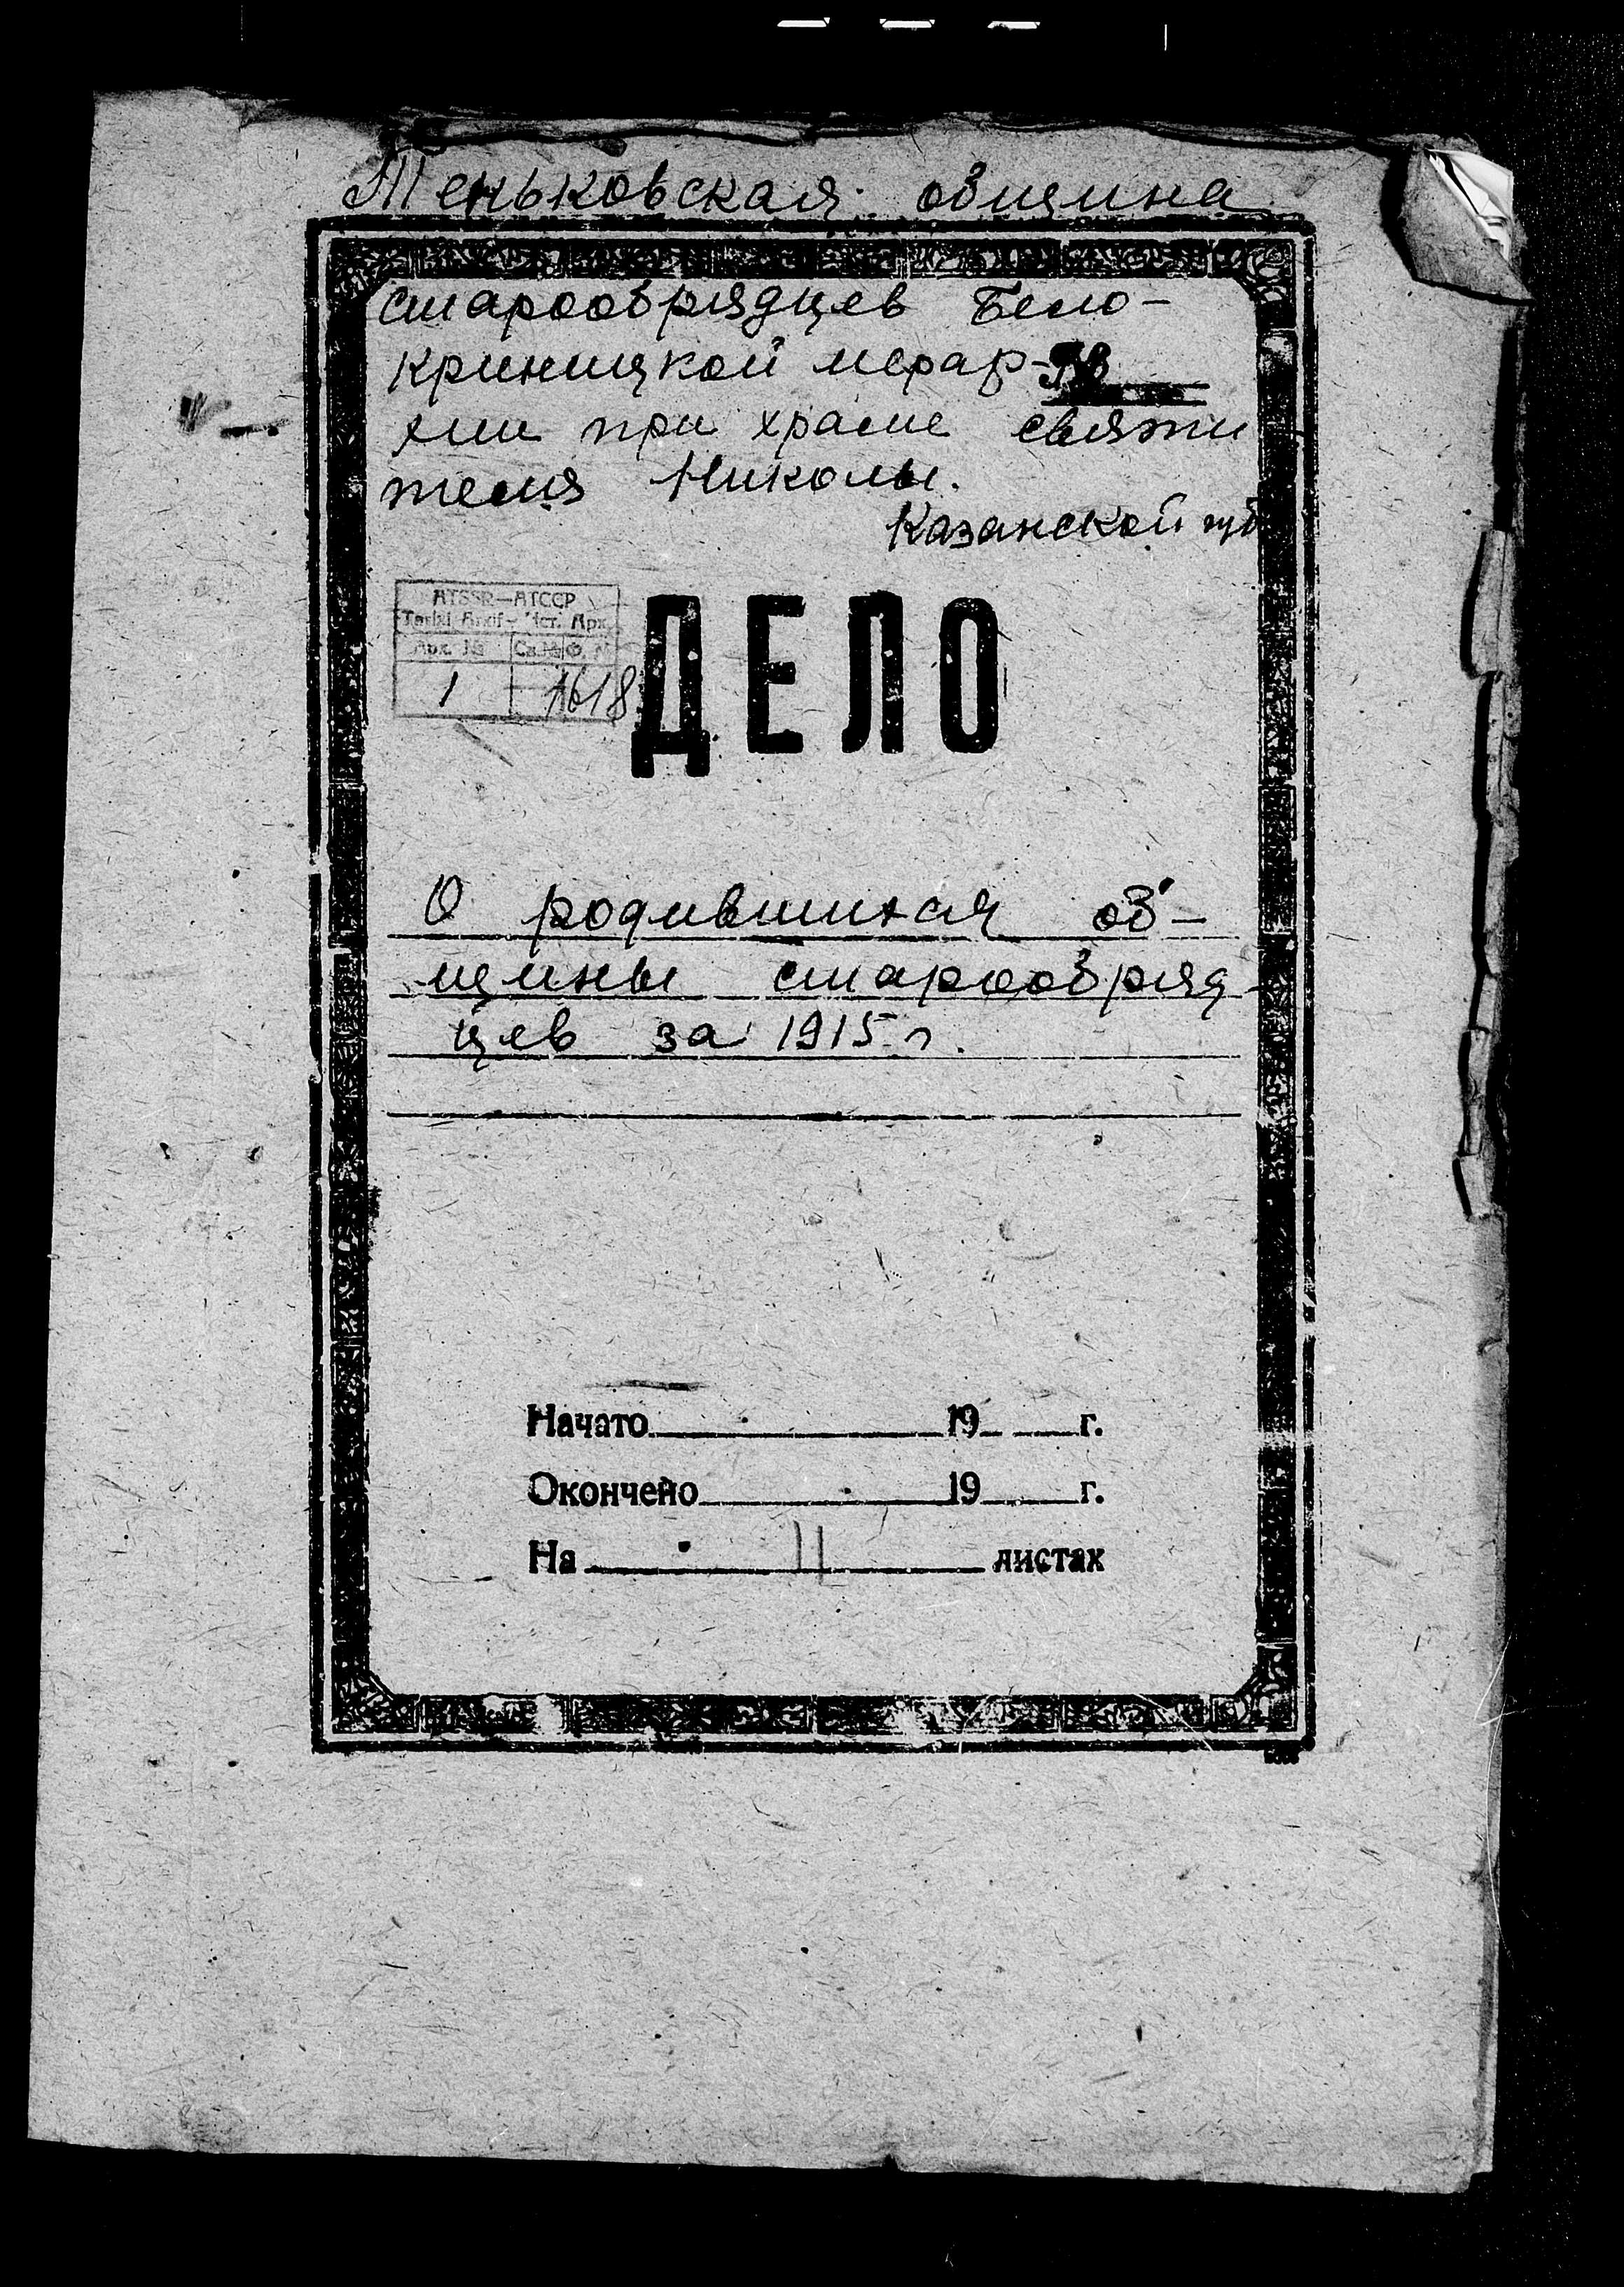 Теньковская община
старообрядцев Бело-
криницкой иерар-
хии при храме святи
теля Николы.
Казанской губ
ATSSR—АТССР
Tarixi Arxif — Ист. Арх.
Арх. № Св. № Ф. №
1 1618
ДЕЛО
О родившихся об-
щины старообряд-
цев за 1915 г.
Начато 19 г.
Окончено 19 г.
На 11 листах